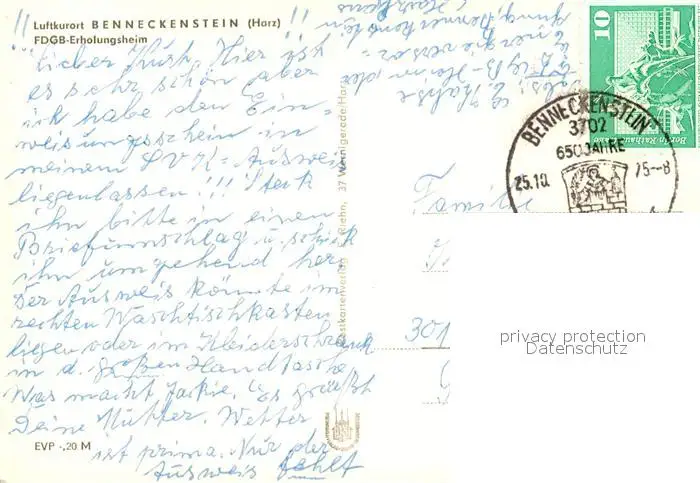 Luftkurort BENNECKENSTEIN (Harz)
FDGB-Erholungsheim
Lieber Kurt. Hier ist
es sehr schön aber
ich habe den Ein=
weisungsschein in
meinem SVK-Ausweis
liegenlassen!!! Steck
ihn bitte in einen
Briefumschlag u. schick
ihn umgehend her.
Der Ausweis könnte im
rechten Waschtischkasten
liegen oder im Kleiderschrank
in d. großen Handtasche
Was macht Jackie. Es grüßt
Deine Mutter. Wetter
ist prima. Nur der
Ausweis fehlt
EVP -,20 M
37 Wernigerode/Harz
10
BENNECKENSTEIN
3702
650 JAHRE
25.10.
75-8
Familie
301
privacy protection
Datenschutz